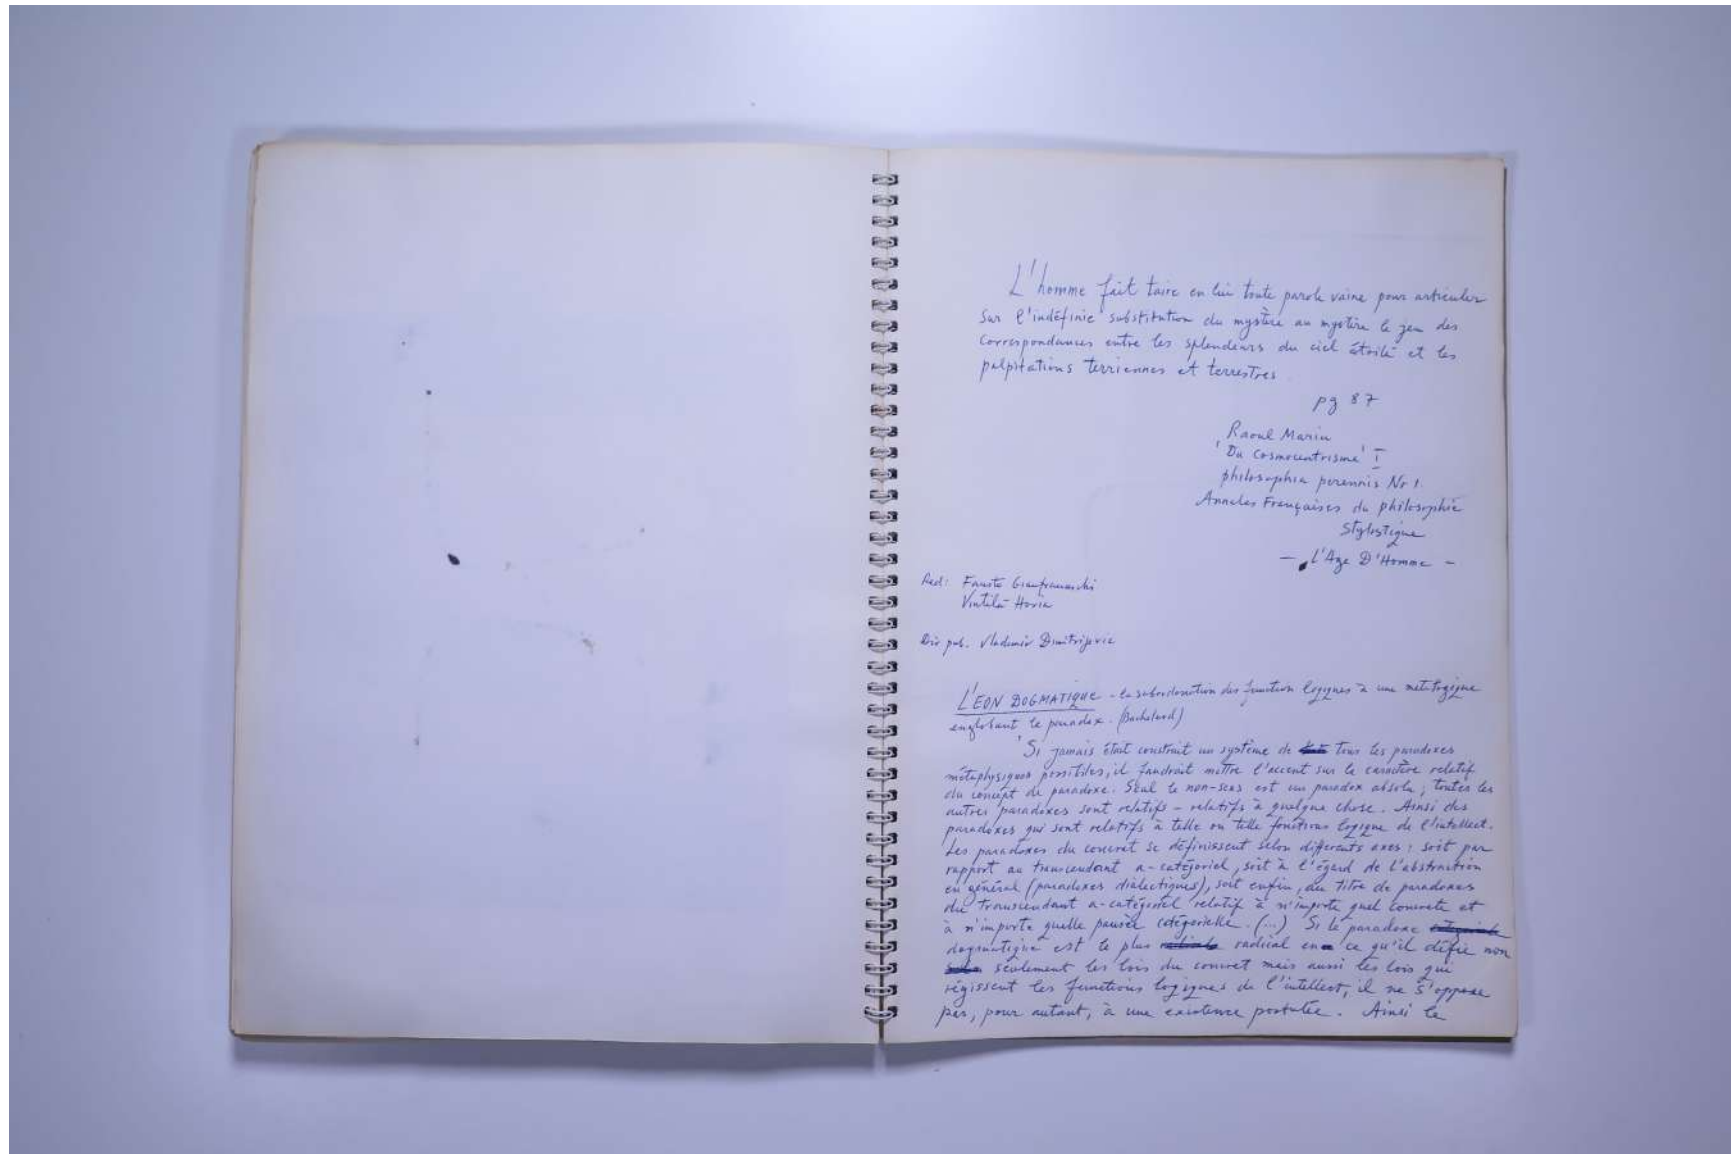 L'homme fait taire en lui toute parole vaine pour articuler
sur l'indéfinie substitution du mystère au mystère le jeu des
correspondances entre les splendeurs du ciel étoilé et les
palpitations terriennes et terrestres
pg 87
Raoul Marin
'Du cosmocentrisme' I
philosophia perennis No 1.
Annales Françaises de philosophie
Stylistique
- L'Age D'Homme -
Red: Fausto Gianfranceschi
Vintilă Horia
Dir pub. Vladimir Dimitrijevic
L'EON DOGMATIQUE - la subordonation des function logiques à une métalogique
englobant le paradox. (Bachelard)
'Si jamais était construit un système de tous les paradoxes
métaphysiques possibles, il faudrait mettre l'accent sur le caractère relatif
du concept de paradoxe. Seul le non-sens est un paradox absolu; toutes les
autres paradoxes sont relatifs - relatifs à quelque chose. Ainsi des
paradoxes qui sont relatifs à telle ou telle fonctions logique de l'intellect.
Les paradoxes du concret se définissent selon différents axes: soit par
rapport au transcendant a-catégoriel, soit à l'égard de l'abstraction
en général (paradoxes dialectiques), soit enfin, au titre de paradoxes
du transcendant a-catégoriel relatif à n'importe quel concrete et
à n'importe quelle pensée catégorielle. (...) Si le paradoxe
dogmatique est le plus radical en ce qu'il défie non
seulement les lois du concret mais aussi les lois qui
régissent les functions logiques de l'intellect, il ne s'oppose
pas, pour autant, à une existence postulée. Ainsi le